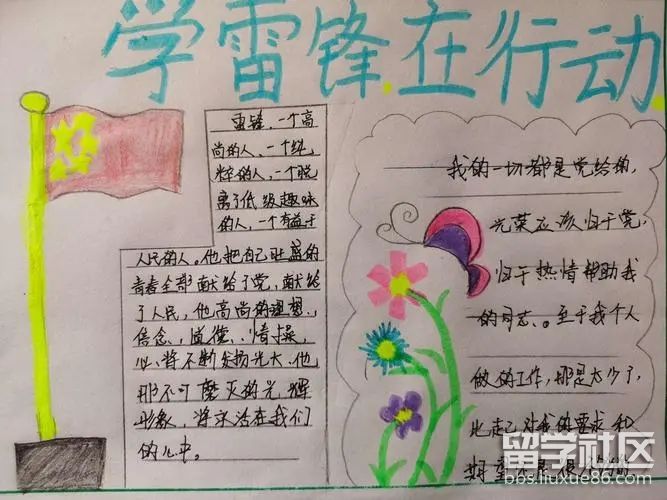 学雷锋在行动
雷锋，一个高
尚的人、一个纯
粹的人、一个脱
离了低级趣味
的人，一个有益于
人民的人。他把自己旺盛的
青春全部献给了党，献给
了人民，他高尚的理想、
信念、道德、情操，
必将不断发扬光大、他
那不可磨灭的光辉
形象，将永活在我们
的心中。
我的一切都是党给的，
光荣应该归于党，
归于热情帮助我
的同志、。至于我个人
做的工作，那是太少了，
比起 对我的要求和
期望
留学社区
bbs.liuxue86.com